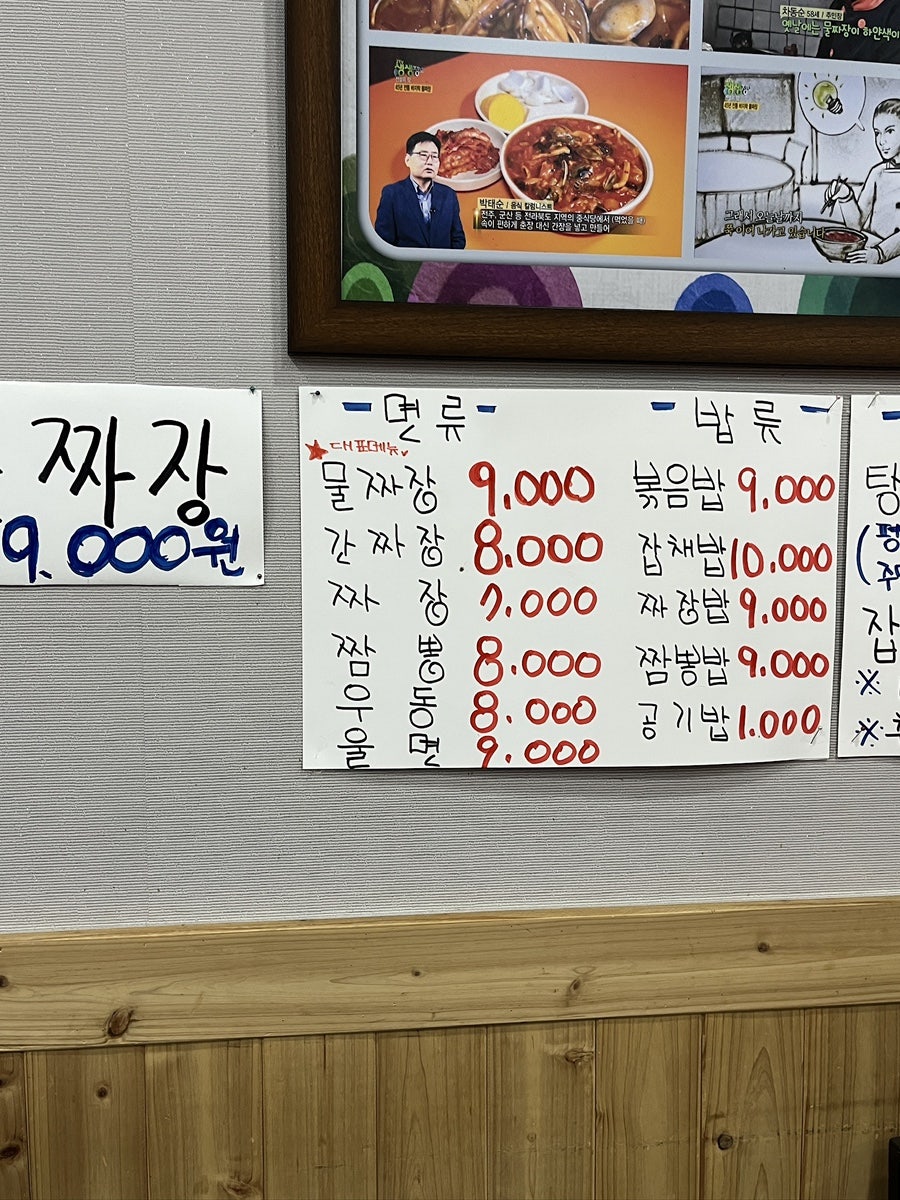 차동순 58세 / 주민장
옛날에는 물짜장이 하얀색이
생생정
박태순 / 음식 칼럼니스트
전주, 군산 등 전라북도 지역의 중식당에서 (먹었을 때)
속이 편하게 춘장 대신 간장을 넣고 만들어
그래서 오늘날까지
쭉 이어 나가고 있습니다
짜장
9.000원
- 면류 -
★ 대표메뉴
물짜장 9.000
간짜장 8.000
짜장 7.000
짬뽕 8.000
우동 8.000
울면 9.000
- 밥류 -
볶음밥 9.000
잡채밥 10.000
짜장밥 9.000
짬뽕밥 9.000
공기밥 1.000
탕
(평
주
잡
※
※